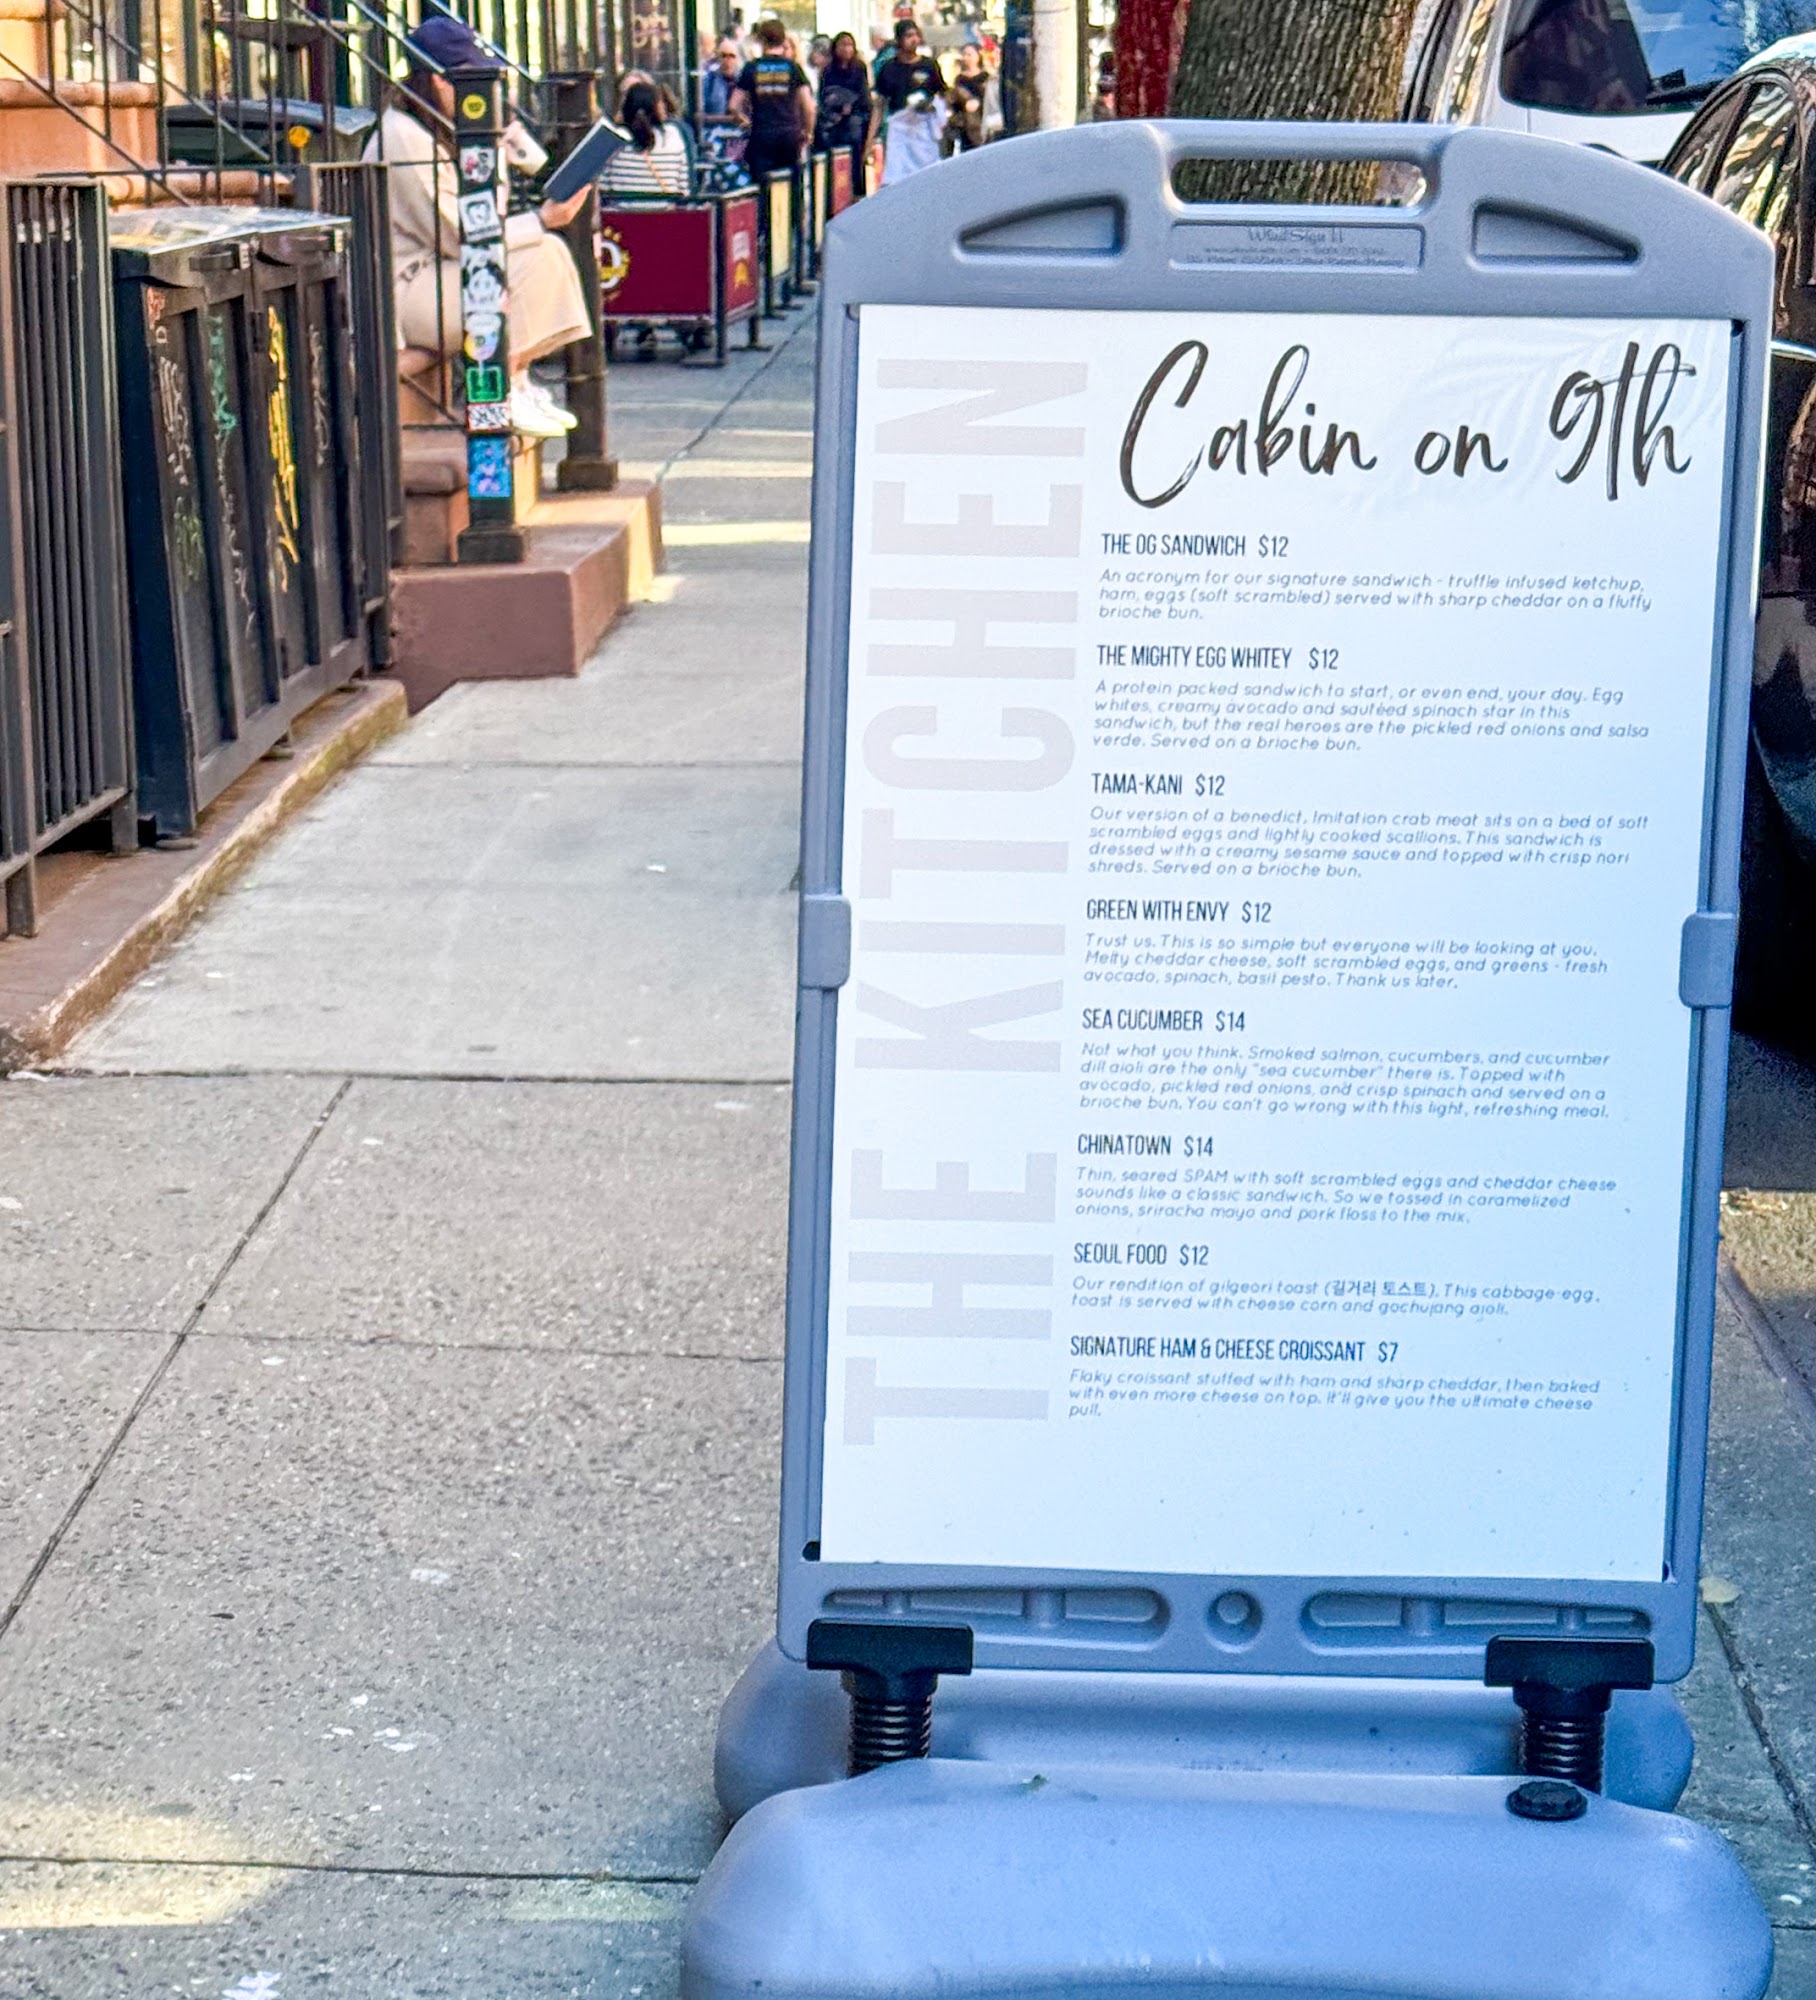 Cabin on 9th
THE KITCHEN
THE OG SANDWICH $12
An acronym for our signature sandwich - truffle infused ketchup,
ham, eggs (soft scrambled) served with sharp cheddar on a fluffy
brioche bun.
THE MIGHTY EGG WHITEY $12
A protein packed sandwich to start, or even end, your day. Egg
whites, creamy avocado and sautéed spinach star in this
sandwich, but the real heroes are the pickled red onions and salsa
verde. Served on a brioche bun.
TAMA-KANI $12
Our version of a benedict. Imitation crab meat sits on a bed of soft
scrambled eggs and lightly cooked scallions. This sandwich is
dressed with a creamy sesame sauce and topped with crisp nori
shreds. Served on a brioche bun.
GREEN WITH ENVY $12
Trust us. This is so simple but everyone will be looking at you.
Melty cheddar cheese, soft scrambled eggs, and greens - fresh
avocado, spinach, basil pesto. Thank us later.
SEA CUCUMBER $14
Not what you think. Smoked salmon, cucumbers, and cucumber
dill aioli are the only "sea cucumber" there is. Topped with
avocado, pickled red onions, and crisp spinach and served on a
brioche bun. You can't go wrong with this light, refreshing meal.
CHINATOWN $14
Thin, seared SPAM with soft scrambled eggs and cheddar cheese
sounds like a classic sandwich. So we tossed in caramelized
onions, sriracha mayo and pork floss to the mix.
SEOUL FOOD $12
Our rendition of gilgeori toast (길거리 토스트). This cabbage-egg
toast is served with cheese corn and gochujang aioli.
SIGNATURE HAM & CHEESE CROISSANT $7
Flaky croissant stuffed with ham and sharp cheddar, then baked
with even more cheese on top. It'll give you the ultimate cheese
pull.